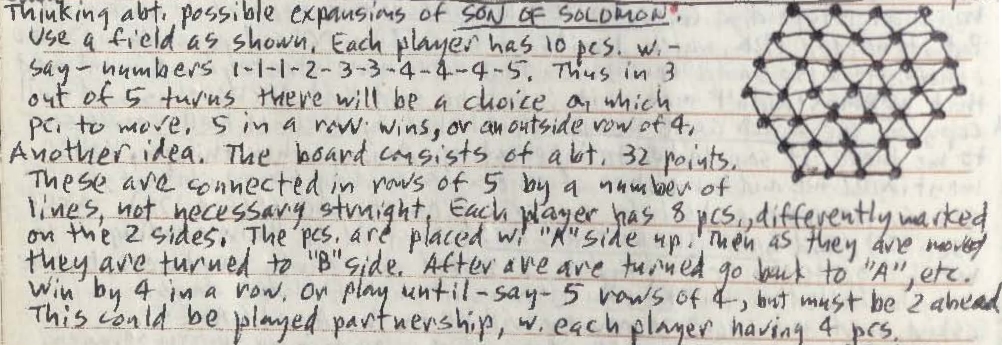 Thinking abt. possible expansions of SON OF SOLOMON.
Use a field as shown. Each player has 10 pcs. w.-
say- numbers 1-1-1-2-3-3-4-4-4-5. Thus in 3
out of 5 turns there will be a choice on which
pc. to move. 5 in a row wins, or an outside row of 4.
Another idea. The board consists of abt. 32 points.
These are connected in rows of 5 by a number of
lines, not necessary straight. Each player has 8 pcs., differently marked
on the 2 sides. The pcs. are placed w. "A" side up. Then as they are moved
they are turned to "B" side. After are are turned go back to "A", etc.
Win by 4 in a row. Or play until-say- 5 rows of 4, but must be 2 ahead
This could be played partnership, w. each player having 4 pcs.